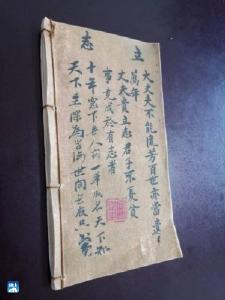 立志
大丈夫不能流芳百世亦當遺
萬年
丈夫貴立志君子不憂貧
事竟成於有志者
十年窓下無人問一舉成名天下知
天下